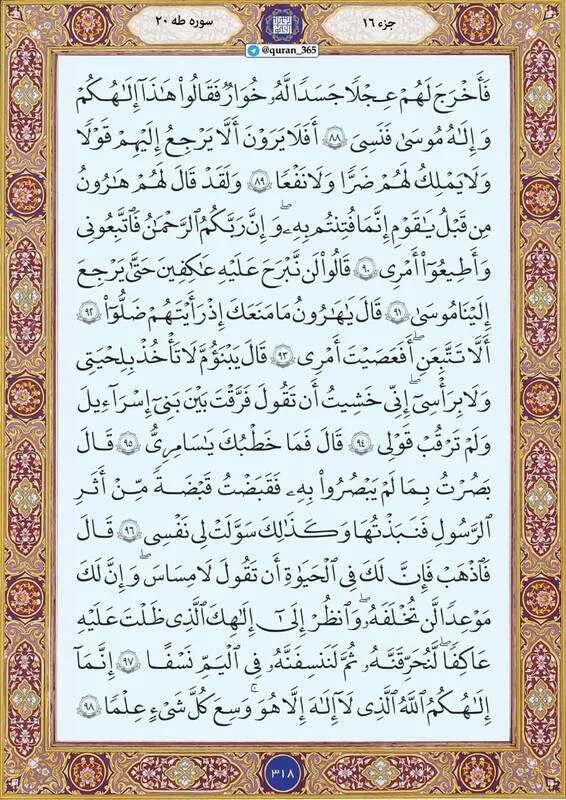 جزء ۱۶
سوره طه ۲۰
@quran_365
فَأَخْرَجَ لَهُمْ عِجْلًا جَسَدًا لَّهُۥ خُوَارٌ فَقَالُوا۟ هَٰذَآ إِلَٰهُكُمْ
وَإِلَٰهُ مُوسَىٰ فَنَسِىَ ۝٨٨ أَفَلَا يَرَوْنَ أَلَّا يَرْجِعُ إِلَيْهِمْ قَوْلًا
وَلَا يَمْلِكُ لَهُمْ ضَرًّا وَلَا نَفْعًا ۝٨٩ وَلَقَدْ قَالَ لَهُمْ هَٰرُونُ
مِن قَبْلُ يَٰقَوْمِ إِنَّمَا فُتِنتُم بِهِۦ ۖ وَإِنَّ رَبَّكُمُ ٱلرَّحْمَٰنُ فَٱتَّبِعُونِى
وَأَطِيعُوٓا۟ أَمْرِى ۝٩٠ قَالُوا۟ لَن نَّبْرَحَ عَلَيْهِ عَٰكِفِينَ حَتَّىٰ يَرْجِعَ
إِلَيْنَا مُوسَىٰ ۝٩١ قَالَ يَٰهَٰرُونُ مَا مَنَعَكَ إِذْ رَأَيْتَهُمْ ضَلُّوٓا۟ ۝٩٢
أَلَّا تَتَّبِعَنِ ۖ أَفَعَصَيْتَ أَمْرِى ۝٩٣ قَالَ يَبْنَؤُمَّ لَا تَأْخُذْ بِلِحْيَتِى
وَلَا بِرَأْسِىٓ ۖ إِنِّى خَشِيتُ أَن تَقُولَ فَرَّقْتَ بَيْنَ بَنِىٓ إِسْرَٰٓءِيلَ
وَلَمْ تَرْقُبْ قَوْلِى ۝٩٤ قَالَ فَمَا خَطْبُكَ يَٰسَٰمِرِىُّ ۝٩٥ قَالَ
بَصُرْتُ بِمَا لَمْ يَبْصُرُوا۟ بِهِۦ فَقَبَضْتُ قَبْضَةً مِّنْ أَثَرِ
ٱلرَّسُولِ فَنَبَذْتُهَا وَكَذَٰلِكَ سَوَّلَتْ لِى نَفْسِى ۝٩٦ قَالَ
فَٱذْهَبْ فَإِنَّ لَكَ فِى ٱلْحَيَوٰةِ أَن تَقُولَ لَا مِسَاسَ ۖ وَإِنَّ لَكَ
مَوْعِدًا لَّن تُخْلَفَهُۥ ۖ وَٱنظُرْ إِلَىٰٓ إِلَٰهِكَ ٱلَّذِى ظَلْتَ عَلَيْهِ
عَاكِفًا ۖ لَّنُحَرِّقَنَّهُۥ ثُمَّ لَنَنسِفَنَّهُۥ فِى ٱلْيَمِّ نَسْفًا ۝٩٧ إِنَّمَآ
إِلَٰهُكُمُ ٱللَّهُ ٱلَّذِى لَآ إِلَٰهَ إِلَّا هُوَ ۚ وَسِعَ كُلَّ شَىْءٍ عِلْمًا ۝٩٨
۳۱۸